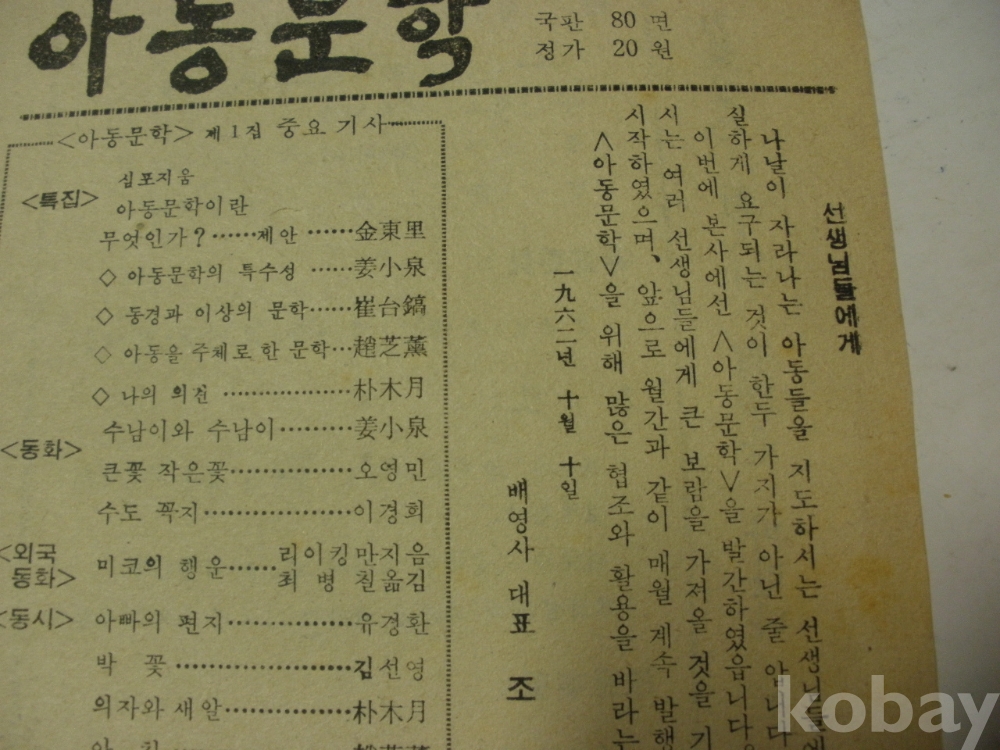 아동문학
국판 80 면
정가 20 원
<아동문학> 제1집 중요 기사
<특집> 심포지움
아동문학이란
무엇인가?……제안……金東里
◇ 아동문학의 특수성……姜小泉
◇ 동경과 이상의 문학……崔台鎬
◇ 아동을 주체로 한 문학…趙芝薰
◇ 나의 의견………………朴木月
<동화> 수남이와 수남이………姜小泉
큰꽃 작은꽃………………오영민
수도 꼭지…………………이경희
<외국동화> 미코의 행운……리이킹만지음
최병칠옮김
<동시> 아빠의 편지………………유경환
박 꽃………………………김선영
의자와 새알………………朴木月
선생님들에게
나날이 자라나는 아동들을 지도하시는 선생님들에
실하게 요구되는 것이 한두 가지가 아닌 줄 압니다
이번에 본사에선 <아동문학>을 발간하였읍니다
서는 여러 선생님들에게 큰 보람을 가져올 것을 기
시작하였으며, 앞으로 월간과 같이 매월 계속 발행
<아동문학>을 위해 많은 협조와 활용을 바라는
一九六二년 十월 十일
배영사 대표 조
kobay